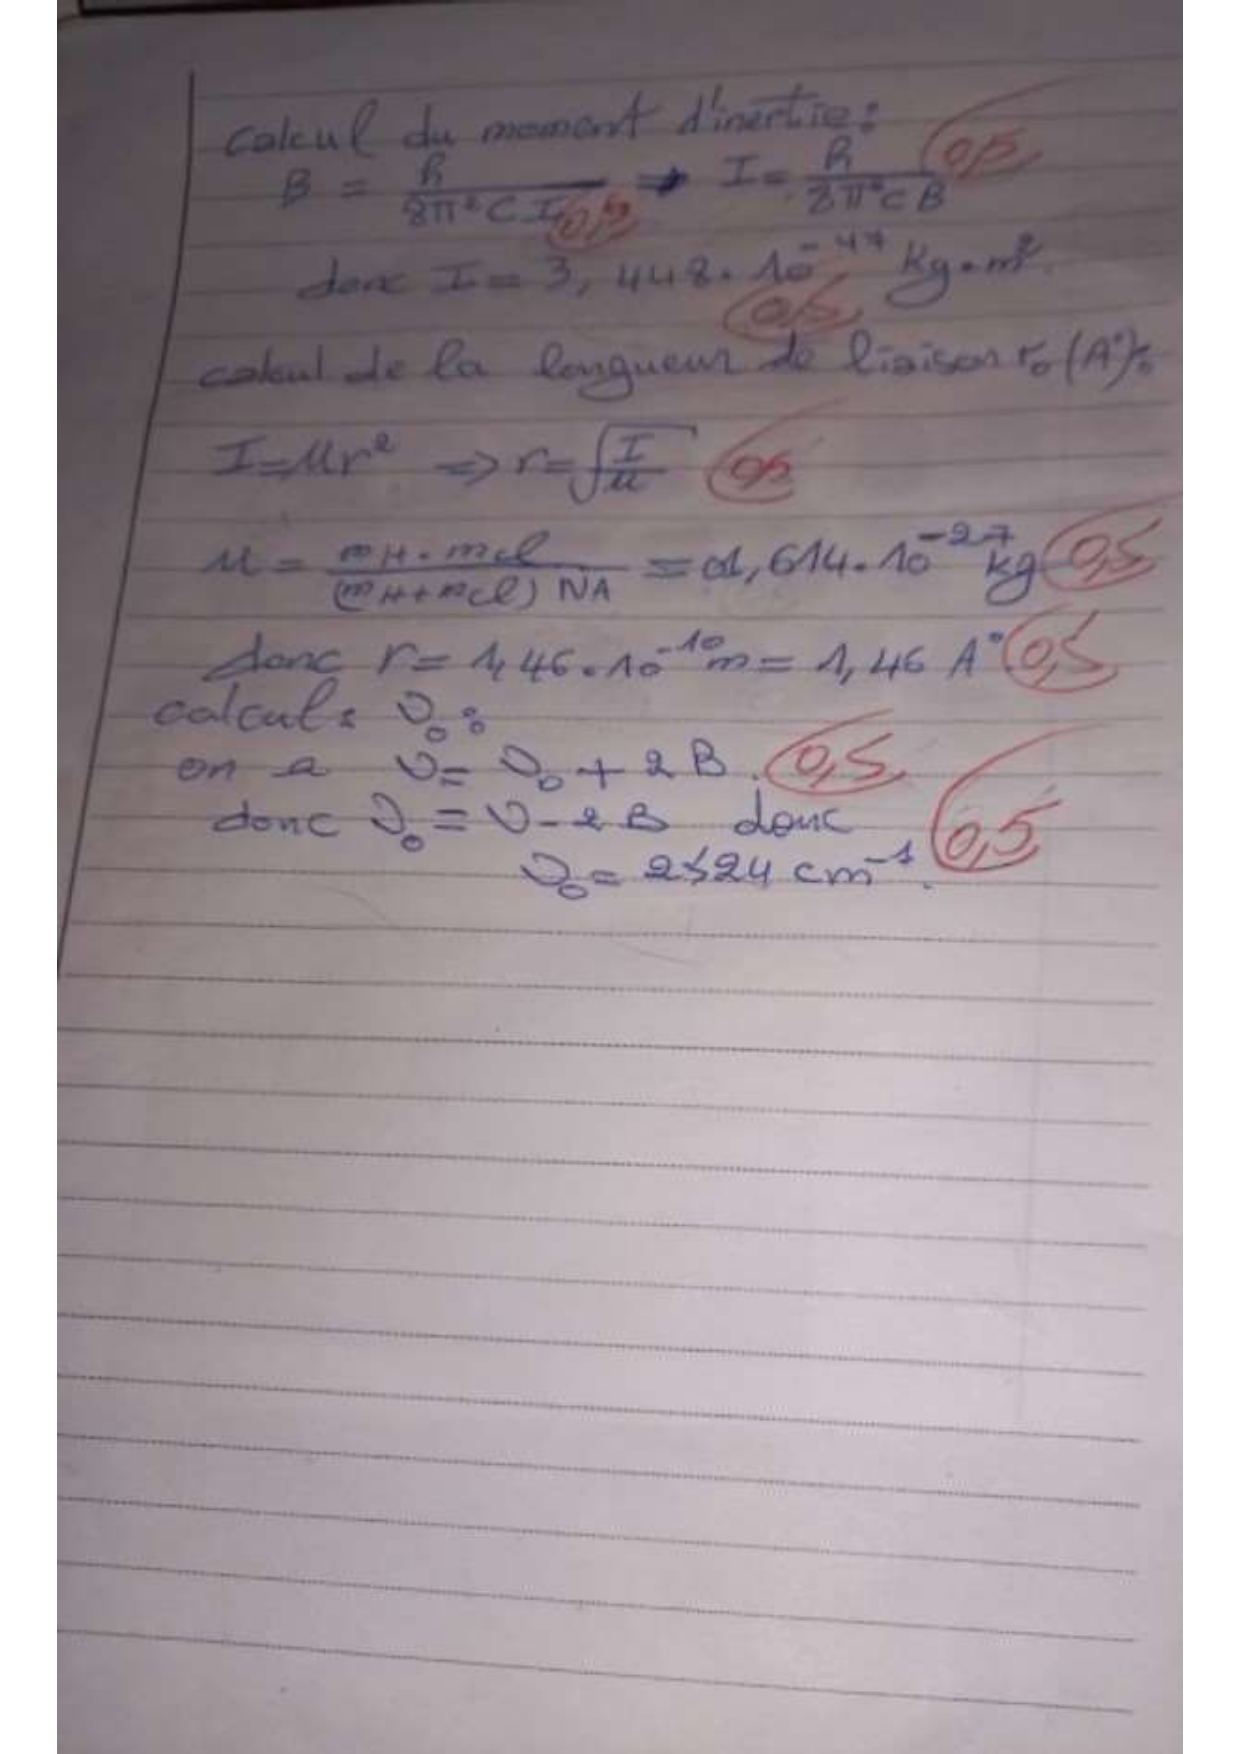 calcul du moment d'inertie: 0,5
B = h / 8π²CI ⇒ I = h / 8π²CB
0,5
donc I = 3,448.10⁻⁴⁷ Kg.m²
0,5
calcul de la longueur de liaison r₀ (A°):
I = μr² ⇒ r = √(I/μ) 0,5
μ = mH.mCl / (mH+mCl) NA = 1,614.10⁻²⁷ kg 0,5
donc r = 1,46.10⁻¹⁰ m = 1,46 A° 0,5
calculs ν₀:
on a ν = ν₀ + 2B. 0,5
donc ν₀ = ν - 2B donc 0,5
cm⁻¹.